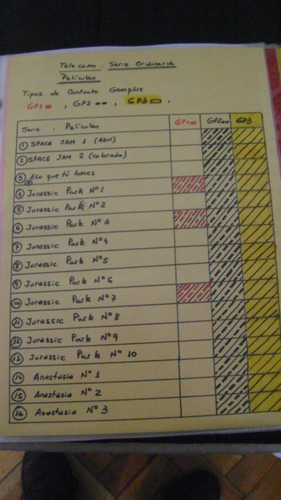 Telecom. Serie Ordinaria
Películas
Tipos de Contacto Gemplus
GP1 , GP2 , GP3 .
Serie: Películas GP1 GP2 GP3
1 SPACE JAM 1 (Azul)
2 SPACE JAM 2 (colorado)
3 Eso que tú haces
4 Jurassic Park N°1
5 Jurassic Park N°2
6 Jurassic Park N°3
7 Jurassic Park N°4
8 Jurassic Park N°5
9 Jurassic Park N°6
10 Jurassic Park N°7
11 Jurassic Park N°8
12 Jurassic Park N°9
13 Jurassic Park N° 10
14 Anastasia N° 1
15 Anastasia N° 2
16 Anastasia N° 3